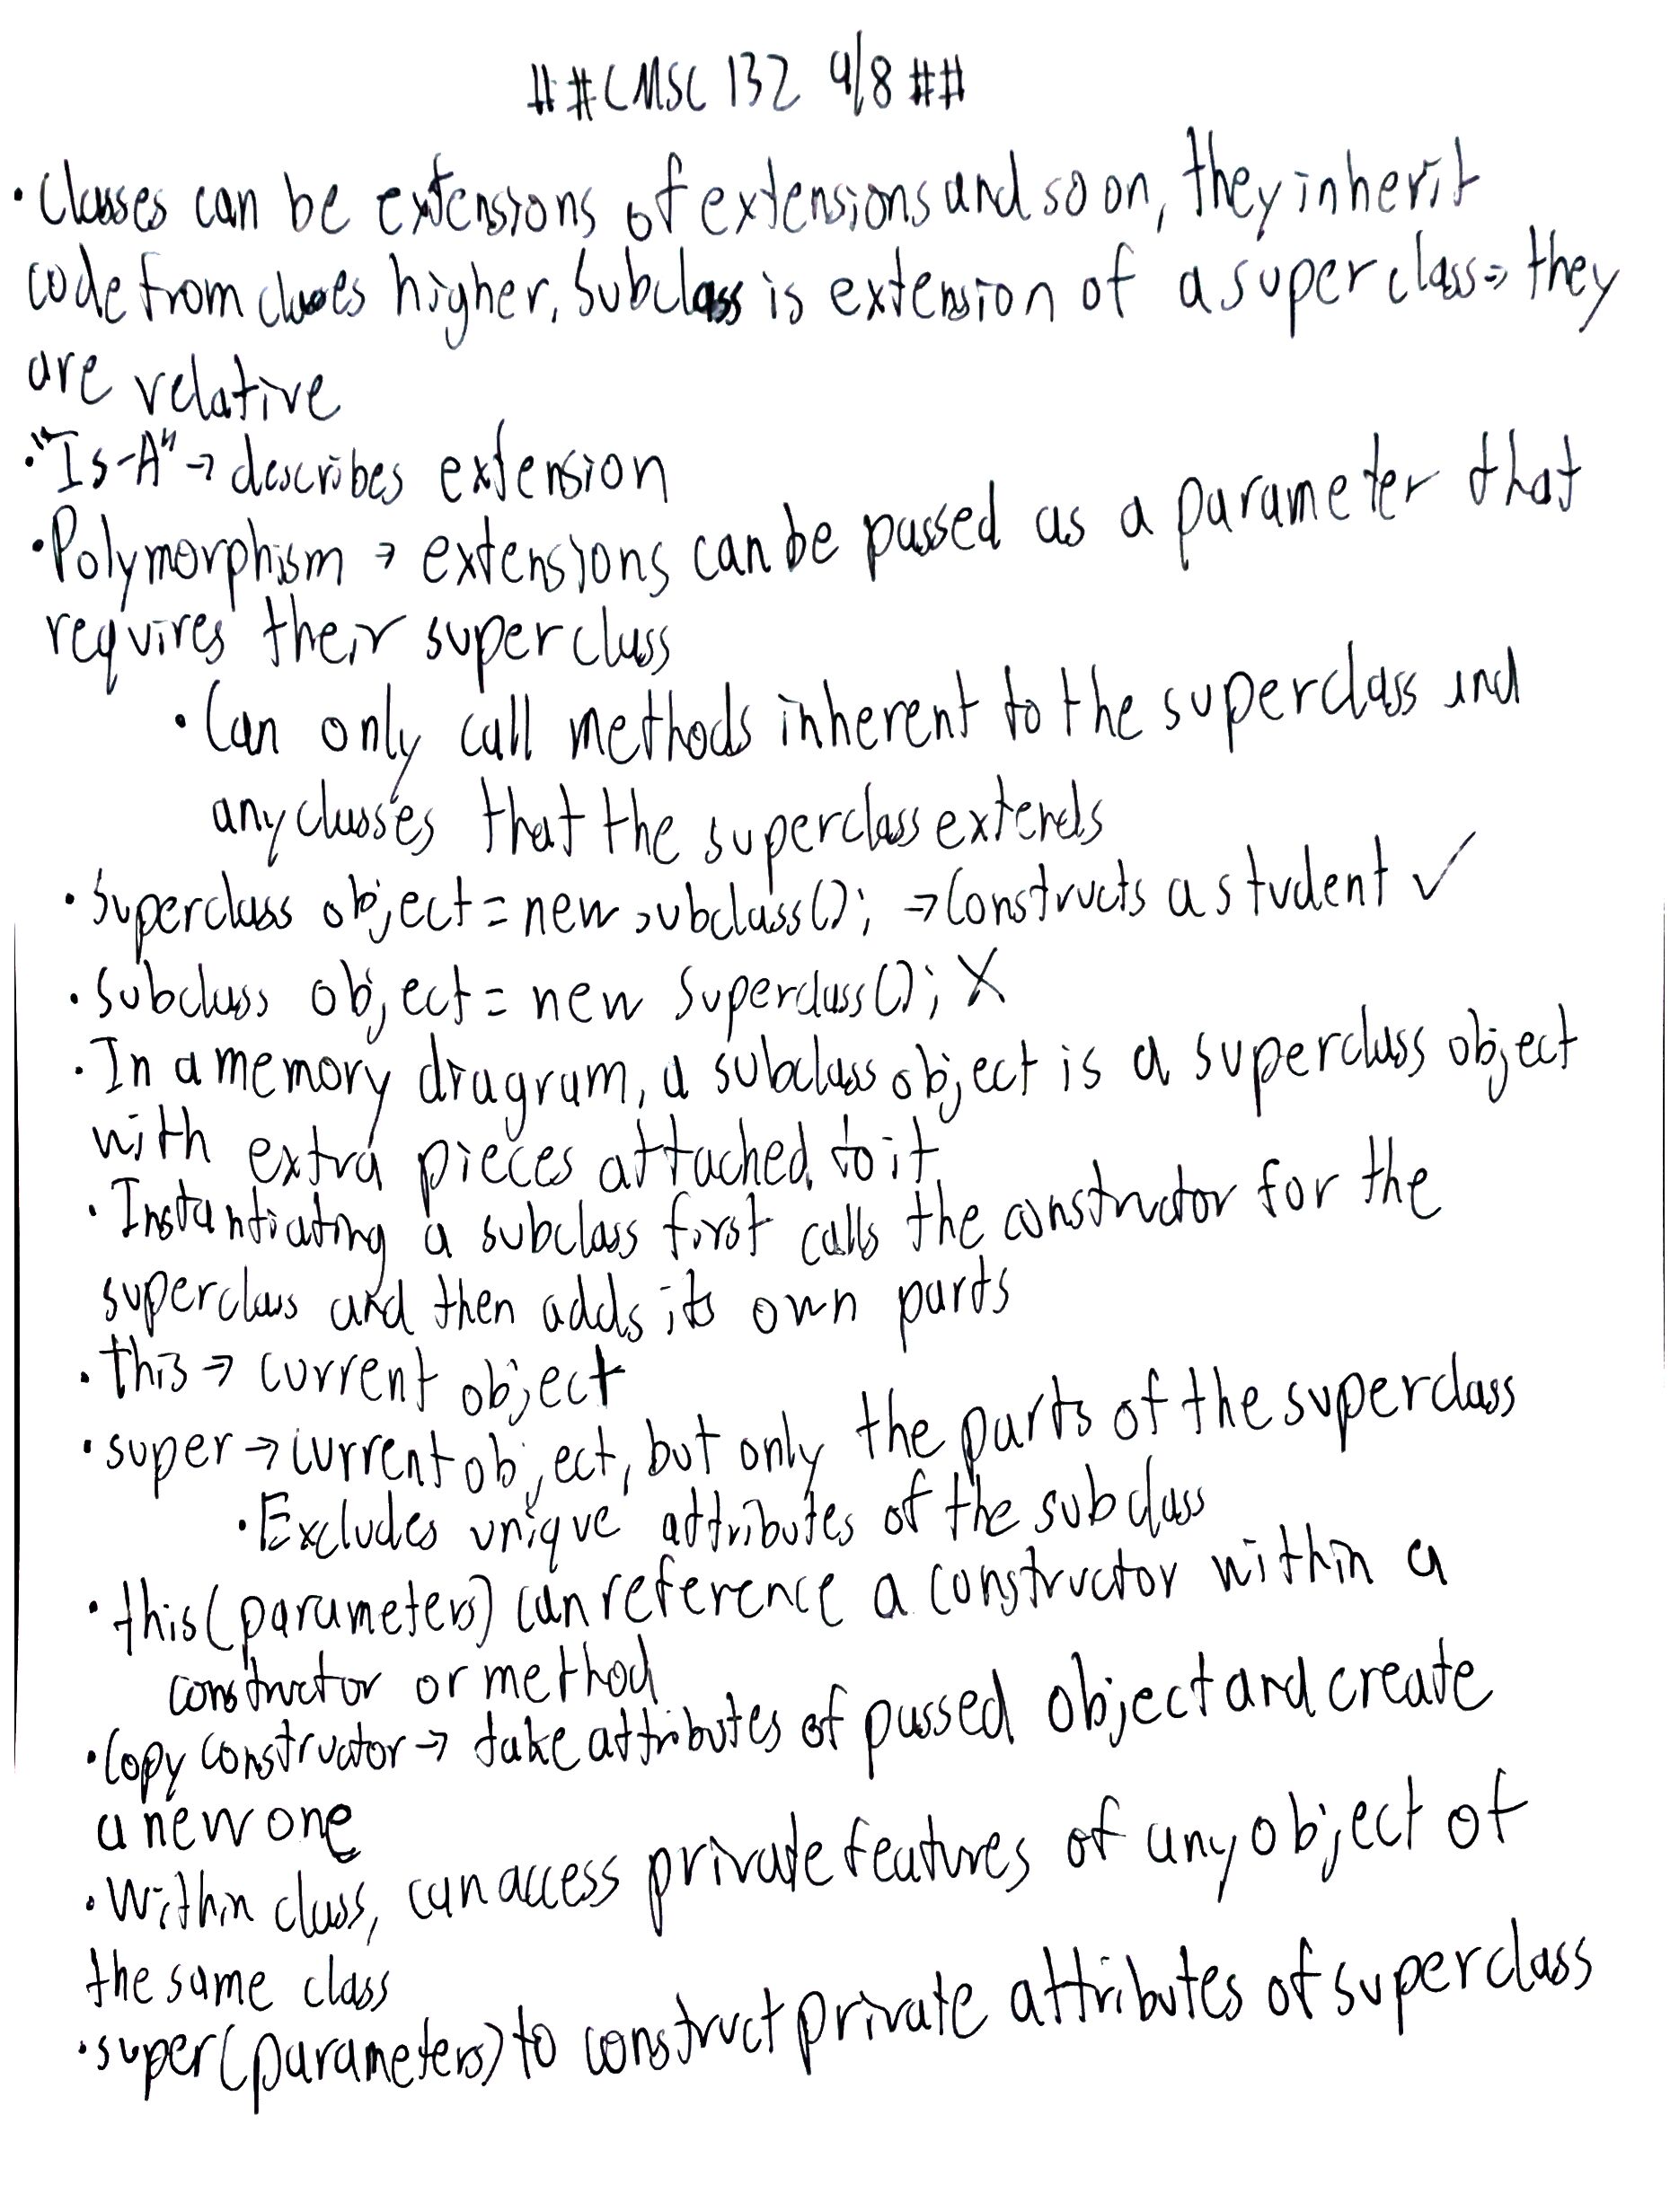 ##CMSC 132 9/8##
• Classes can be extensions of extensions and so on, they inherit
code from classes higher. Subclass is extension of a superclass→ they
are relative
• "Is-A" → describes extension
• Polymorphism → extensions can be passed as a parameter that
requires their superclass
• Can only call methods inherent to the superclass and
any classes that the superclass extends
• Superclass object = new subclass(); → Constructs a student ✓
• Subclass object = new Superclass(); X
• In a memory diagram, a subclass object is a superclass object
with extra pieces attached to it
• Instantiating a subclass first calls the constructor for the
superclass and then adds its own parts
• this → current object
• super → current object, but only the parts of the superclass
• Excludes unique attributes of the subclass
• this(parameters) can reference a constructor within a
constructor or method
• Copy constructor → take attributes of passed object and create
a new one
• Within class, can access private features of any object of
the same class
• super(parameters) to construct private attributes of superclass